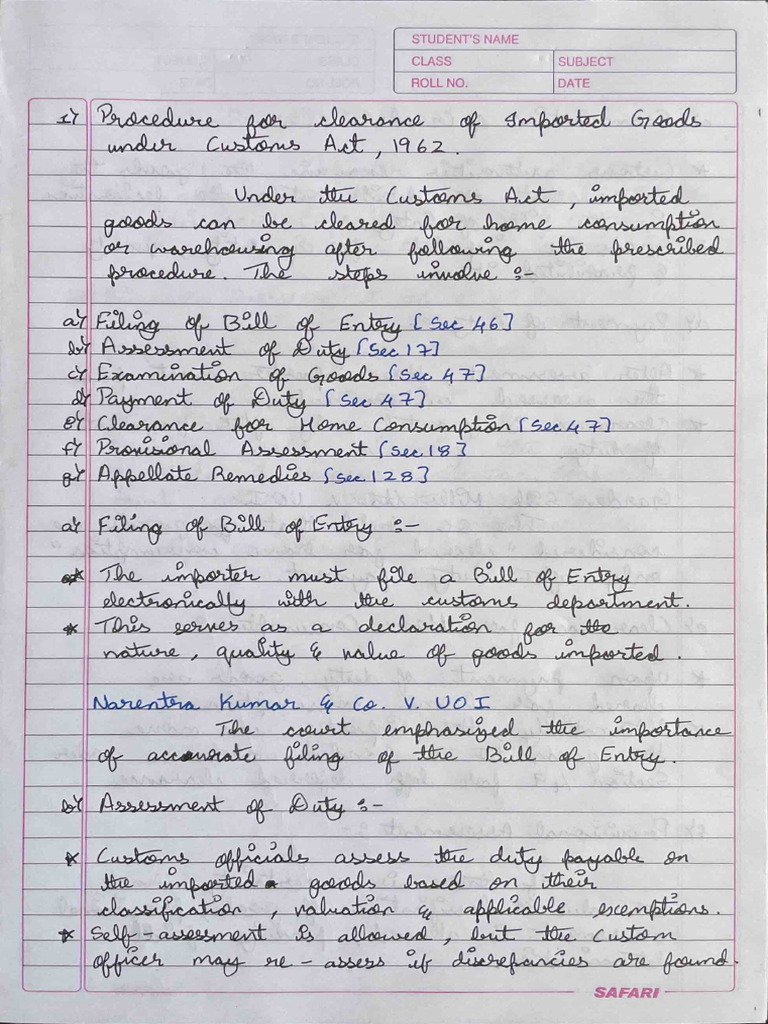 STUDENT'S NAME
CLASS
SUBJECT
ROLL NO.
DATE
1) Procedure for clearance of Imported Goods
under Customs Act, 1962.
Under the Customs Act, imported
goods can be cleared for home consumption
or warehousing after following the prescribed
procedure. The steps involve :-
a) Filing of Bill of Entry [Sec 46]
b) Assessment of Duty [Sec 17]
c) Examination of Goods [Sec 47]
d) Payment of Duty [Sec 47]
e) Clearance for Home Consumption [Sec 47]
f) Provisional Assessment [Sec 18]
g) Appellate Remedies [Sec 128]
a) Filing of Bill of Entry :-
* The importer must file a Bill of Entry
electronically with the customs department.
* This serves as a declaration for the
nature, quality & value of goods imported.
Narentra Kumar & Co. V. UOI
The court emphasized the importance
of accurate filing of the Bill of Entry.
b) Assessment of Duty :-
* Customs officials assess the duty payable on
the imported goods based on their
classification, valuation & applicable exemptions.
* Self-assessment is allowed, but the Custom
officer may re-assess if discrepancies are found.
SAFARI